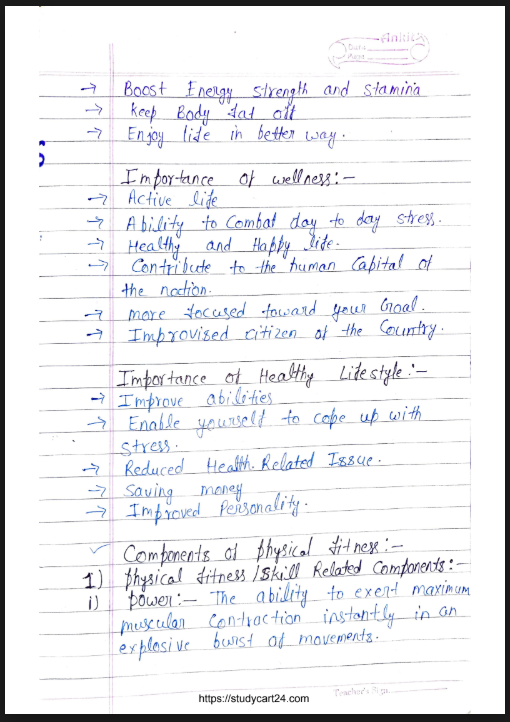 Ankit
Date
Page
→ Boost Energy strength and stamina
→ Keep Body fat off
→ Enjoy life in better way.
Importance of wellness:-
→ Active life
→ Ability to Combat day to day stress.
→ Healthy and Happy life.
→ Contribute to the human Capital of
the nation.
→ more focused toward your Goal.
→ Improvised citizen of the Country.
Importance of Healthy Lifestyle:-
→ Improve abilities
→ Enable yourself to cope up with
stress.
→ Reduced Health Related Issue.
→ Saving money
→ Improved Personality.
✓ Components of physical fitness:-
1) physical fitness/Skill Related Components:-
i) power:- The ability to exert maximum
muscular Contraction instantly in an
explosive burst of movements.
Teacher's Sign
https://studycart24.com